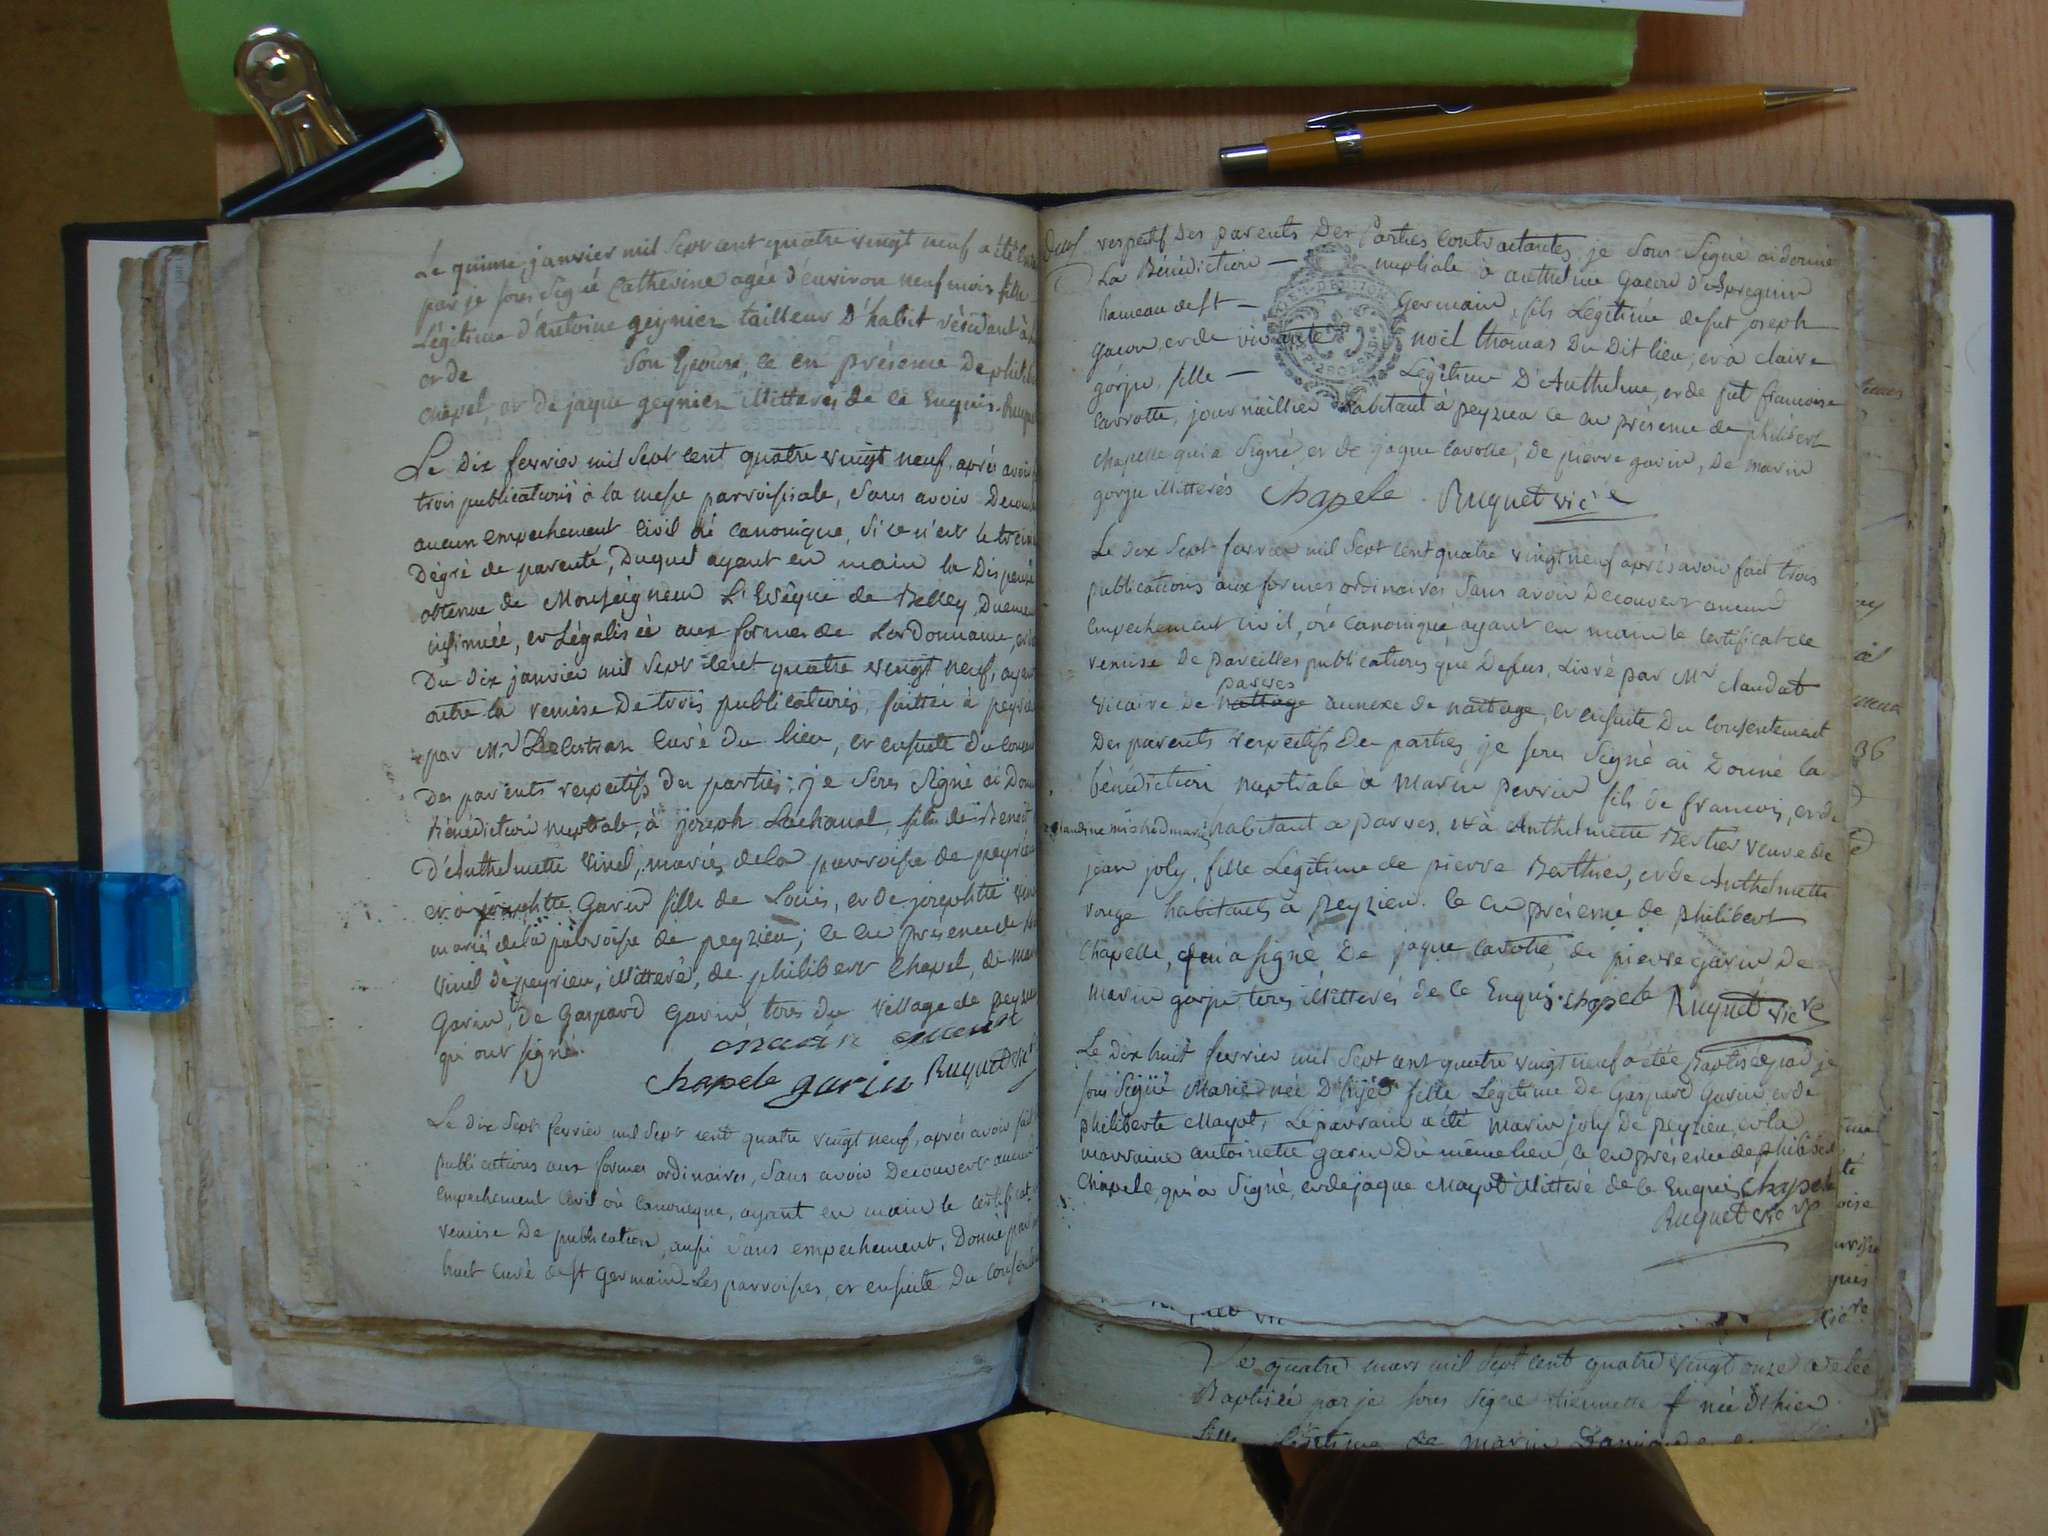 Le quinze janvier mil Sept cent quatre vingt neuf a été
par je sous Signé Catherine agée d'environ neuf mois fille
Légitime d'antoine geynier tailleur D'habit résident à
et de Son Epouse, ce en présence de
chapel, et de jaque geynier illitterés de ce Enquis.
Le dix fevrier mil Sept cent quatre vingt neuf, aprés avoir
trois publications à la messe parroissiale, Sans avoir
aucun empechement Civil né canonique, Si ce n'est le
Dégré de parenté, Duquel ayant en main la Dispense
obtenue de Monseigneur L'Evêque de Belley,
insinuée, et Légalisée aux formes de Lordonnance,
Du dix janvier mil Sept Cent quatre vingt neuf, ayant
outre la remise De trois publications, faittes à
par Mr curé du lieu, et ensuite du
Des parents respectifs des parties; je sous Signé ai Donné
bénédiction nuptiale, à joseph Lachanal, fils de Benoit
D'Anthelmette vinel, mariés de la parroisse de
et à josephtte Garin fille de Louis, et de josephtte
mariés de la parroisse de peyzieu; ce en presence de
vinel de peyrieu, illitteré, de philibert Chapel, de
Garin, de Gaspard Garin, tous du village de
qui ont signé.
Chapele garin Ruquet
Le dix Sept fevrier mil Sept cent quatre vingt neuf, aprés avoir fait
publications aux formes ordinaires, Sans avoir Decouvert
empechement Civil où Canonique, ayant en main le certificat
remise De publication, aussi Sans empechement, Donné par
huet curé de st Germain Les parroisses, et ensuite Du
respectif Des parents Des Parties Contractantes, je Sous Signé ai donné
La Bénédiction — nuptiale à anthelme Gacon
hameau de st — Germain, fils Légitime de fut joseph
Gacon, et de noël thomas Du Dit lieu; et à claire
gorju, fille — Légitime D'Anthelme, et de fut francoise
Cavotte, journaillier habitant à peyzieu ce en présence de philibert
chapelle qui a Signé, et de jaque Cavotte, de pierre garin, De marin
gorju illitterés Chapele Ruquet vice
Le dix Sept fevrier mil Sept cent quatre vingt neuf aprés avoir fait trois
publications aux formes ordinaires Sans avoir Decouvert aucun
empechement Civil, où canonique, ayant en main le certificat de
remise De pareilles publications que Dessus, Livré par Mr claudat
parves
vicaire de nattage annexe de nattage, et ensuite Du Consentement
Des parents respectifs Des parties, je sous Signé ai Donné la
bénédiction nuptiale à Marin perrin fils de francois, et de
habitant a parves, et à Anthelmette Bertier veuve de
jean joly, fille Legitime de pierre Berthier, et de Anthelmette
rouge habitants a peyzieu. Ce en présence de philibert
Chapelle, qui a signé, De jaque Cavotte, de pierre garin De
Marin gorju tous illitterés de ce Enquis. Chapele Ruquet vice
Le Dix huit fevrier mil Sept cent quatre vingt neuf a étée Baptisée par je
sous Signé Marie née fille Légitime De Gaspard Garin, et de
philiberte Mayot, Le parrain a été marin joly De peyzieu, et la
marraine antoinette garin Du même lieu, ce en présence de philibert
Chapele, qui a Signé, et de jaque Mayot illitteré de ce Enquis Chapele
Ruquet vice
Le quatre mars mil Sept cent quatre vingt onze a étée
Baptisée par je sous Signé née
fille Légitime de marin